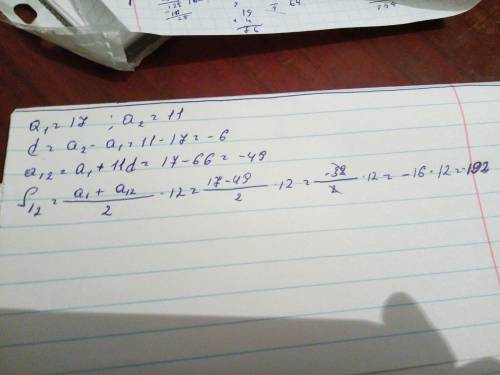 128
19
4
76
64
a₁ = 17 ; a₂ = 11
d = a₂ - a₁ = 11 - 17 = -6
a₁₂ = a₁ + 11d = 17 - 66 = -49
S₁₂ = (a₁ + a₁₂)/2 · 12 = (17 - 49)/2 · 12 = -32/2 · 12 = -16 · 12 = -192